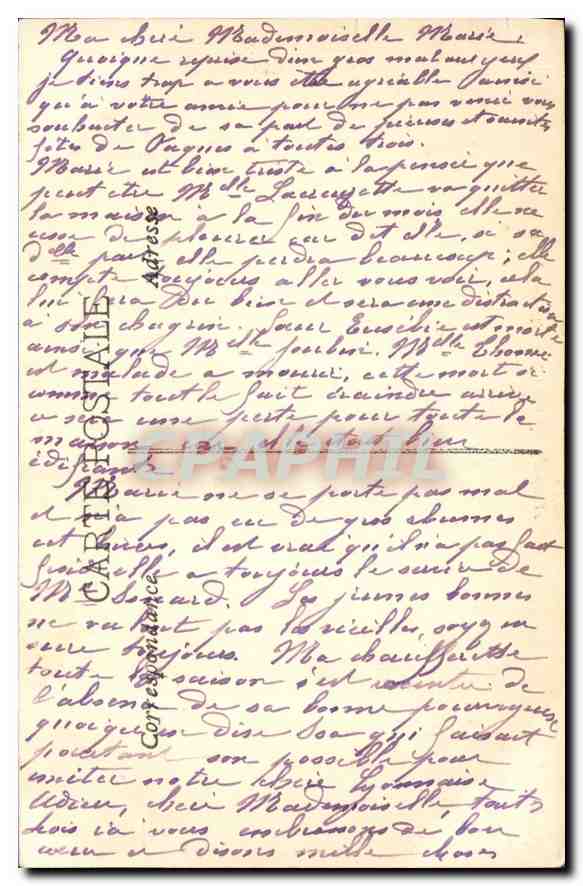 Ma chère Mademoiselle Marie,
Quoique reprise d'un gros mal aux yeux
je tiens trop a vous être agréable ainsi
qu'à votre amie pour ne pas venir vous
souhaiter de sa part de joyeuses et saintes
fêtes de Pâques à toutes trois.
Marie est bien triste à la pensée que
peut être Melle va quitter
la maison à la fin du mois, elle ne
cesse de pleurer car dit elle, si sa
Delle part elle perdra beaucoup ; elle
compte toujours aller vous voir, cela
lui fera du bien et sera une distraction
à son chagrin. Sœur Eusébie est morte
ainsi que Melle . Melle
est malade a mourir, cette mort si
comme tout le fait craindre arrive
ce sera une perte pour toute la
maison car elle était bien
édifiante
Marie ne se porte pas mal
et n'a pas eu de gros rhumes
cet hiver, il est vrai qu'il n'a pas fait
froid elle a toujours le sourire de
Me . Les jeunes bonnes
ne valent pas les vieilles, soyez en
sure toujours. Ma chaufferette
toute la saison s'est de
l'absence de sa bonne pourvoyeuse
quoiqu'en dise qui faisait
pourtant son possible pour
imiter notre chère Lyonnaise
Adieu, chère Mademoiselle, toutes
trois ici vous embrassons de bon
cœur et disons mille choses
CARTE POSTALE
Correspondance
Adresse
CPAPHIL